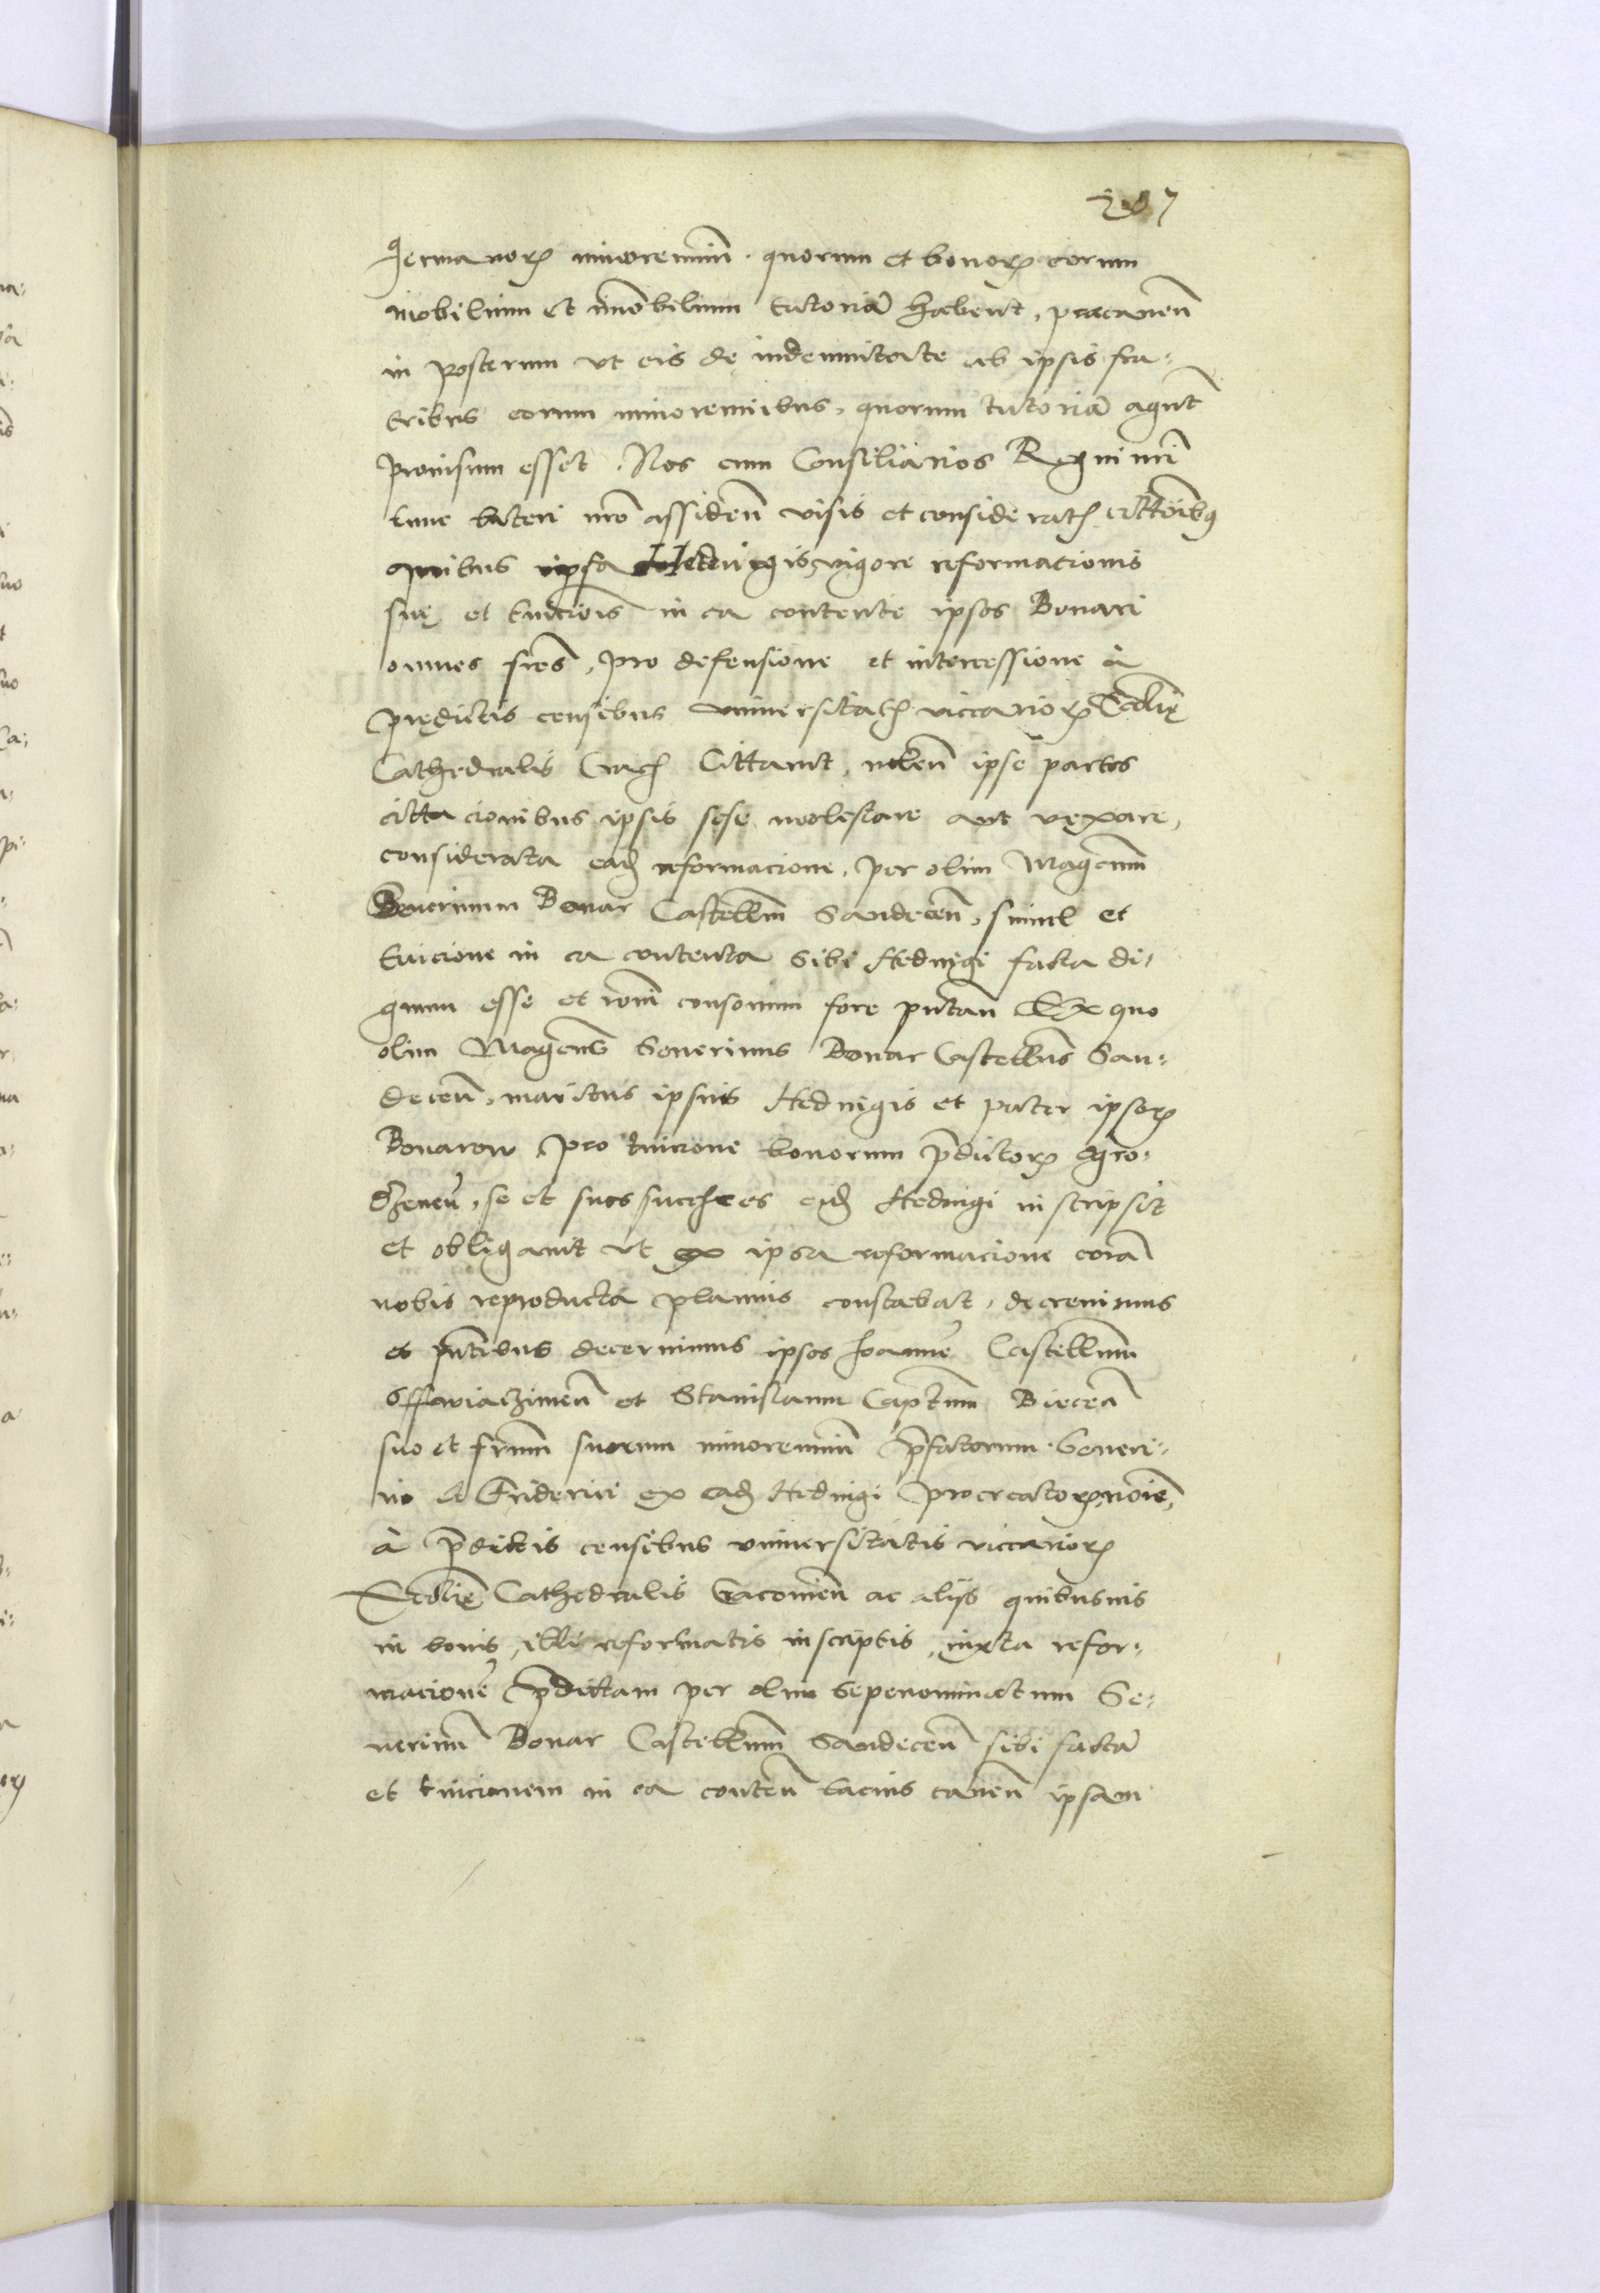 germanorꝫ minoreñium quorum et bonorꝫ eorum
mobilium et im̃obilium tutoriã habent, praecaueñ
in posterum vt eis de indemnitate ab ipsis fra-
tribus eorum minorennibus, quorum tutoriã agũt
prouisum esset. Nos cum Consiliarios Regni nr̃i
tunc lateri nr̃o assideñ visis et consideratis cittõibꝰ
quibus ipsa Hedwigis, vigore reformationis
suę et tuicõis in ea contente ipsos Bonari
omnes fr̃es, pro defensione et intercessione à
prędictis censibus vniuersitatis viccariorꝫ Eccliȩ
Cathedralis Crac Cittauit, noleñ ipse partes
cittacionibus ipsis sese molestare aut vexare,
considerata eadꝫ reformacione, per olim Mageñum
Seuerinum Bonar Castellm̃ Sandeceñ, simul et
tuicione in ea contenta sibi Hedwigi facta di-
gnum esse et rõni consonum fore putañ Ex quo
olim Mageñus Seuerinus Bonar Castellñus San-
deceñ, maritus ipsius Hedwigis et pater ipsorꝫ
Bonarow pro tuicione bonorum p̃dictorꝫ Ogro-
dzeneũ, se et suos succes̃res eidꝫ Hedwigi inscripsit
et obligauit vt ex ipsa reformacione corã
nobis reproducta planius constabat, decreuimus
et pñtibus decernimus ipsos Joannẽ Castellm̃
Osswiaczimeñ et Stanislaum Captm̃ Bieceñ
suo et fr̃um suorum minoreñium p̃fatorum Seueri-
ni et Friderici ex eadꝫ Hedwigi procreatorꝫ, noĩe,
à p̃dictis censibus vniuersitatis viccariorꝫ
Eccliẽ Cathedralis Cracouieñ ac alijs quibusuis
in bonis, illi reformatis inscriptis, iuxta refor-
macionẽ p̃dictam per olim sepenominatum Se-
uerinũ Bonar Castellm̃ Sandeceñ sibi factã
et tuicionem in ea conteñ lacius caueñ ipsam